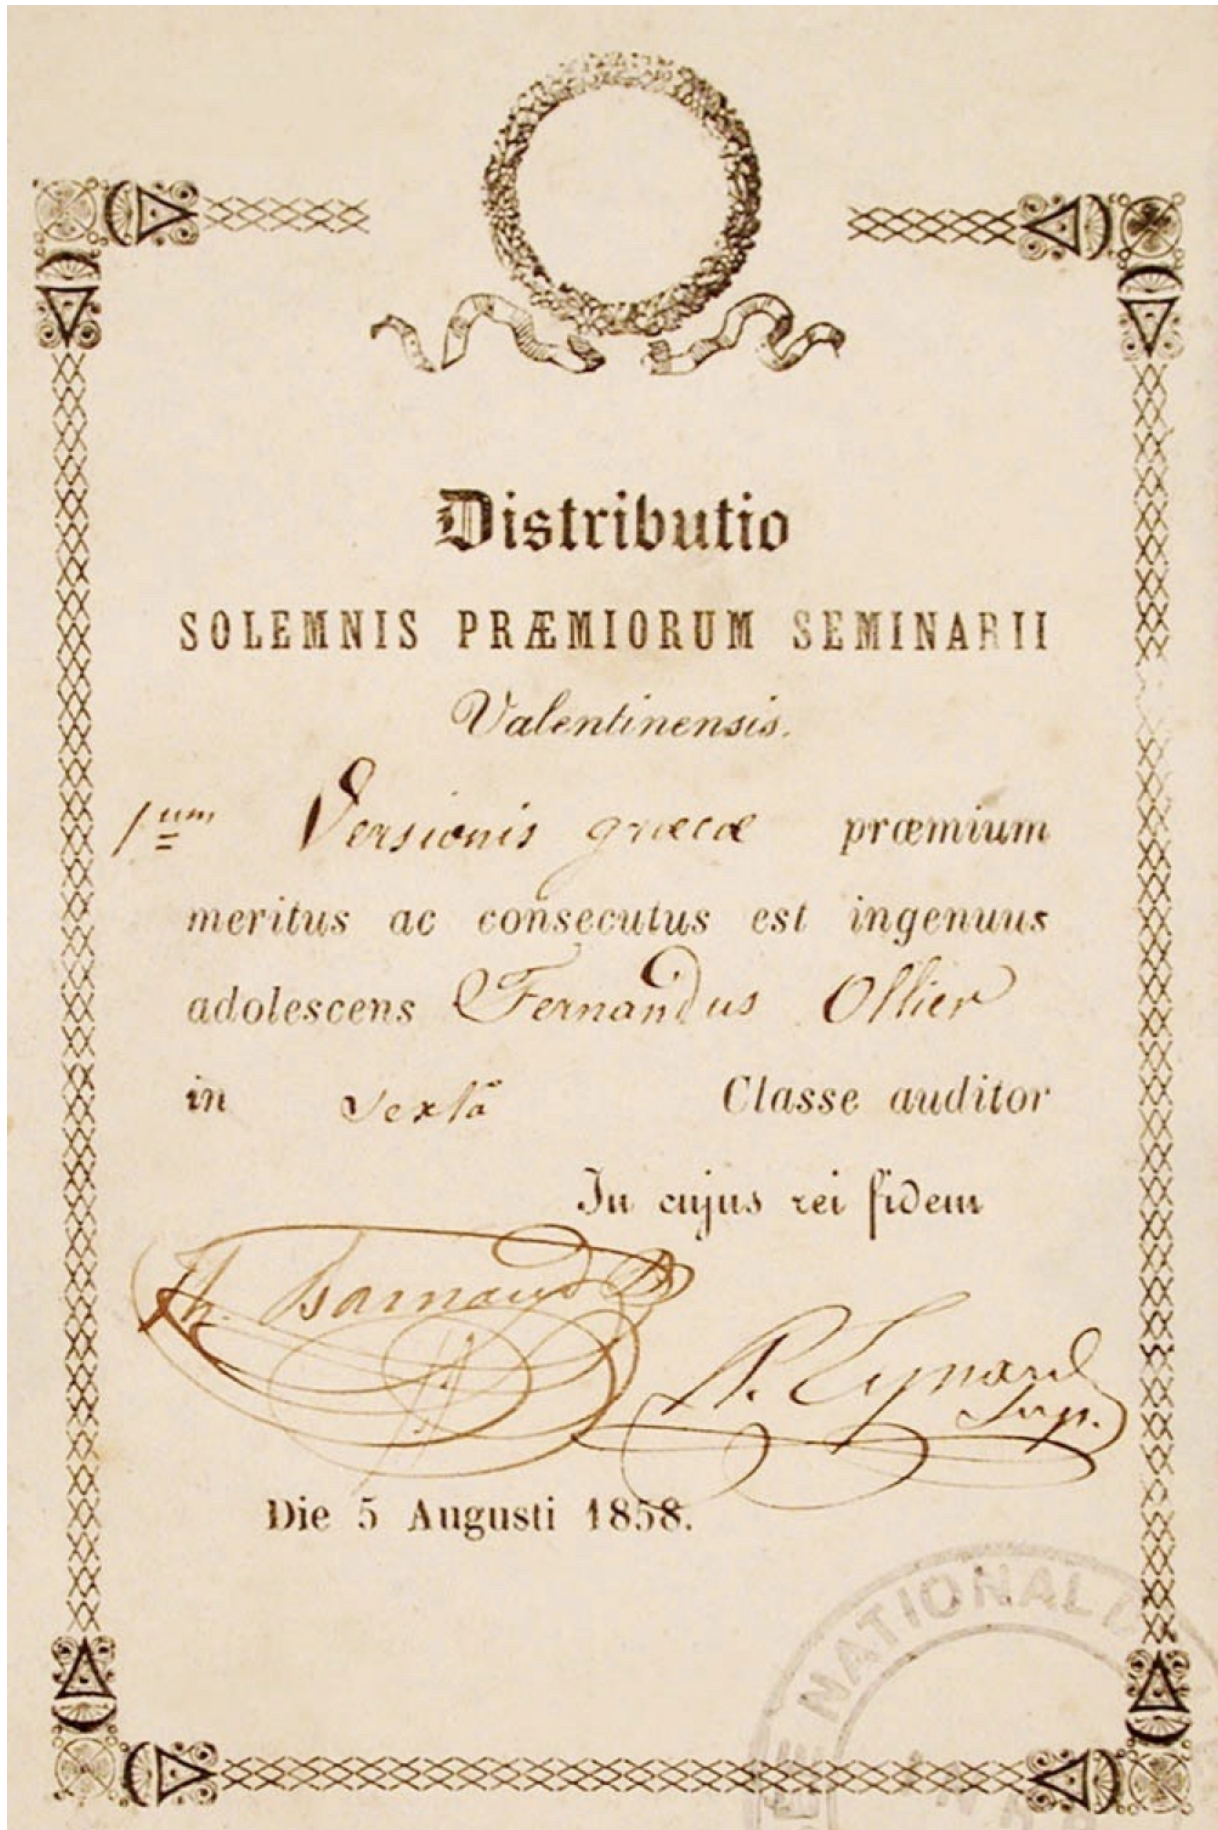 Distributio
SOLEMNIS PRÆMIORUM SEMINARII
Valentinensis.
1um Versionis græcæ præmium
meritus ac consecutus est ingenuus
adolescens Fernandus Ollier
in Sextâ Classe auditor
In cujus rei fidem
Barnaud
Sup.
Die 5 Augusti 1858.
NATIONAL